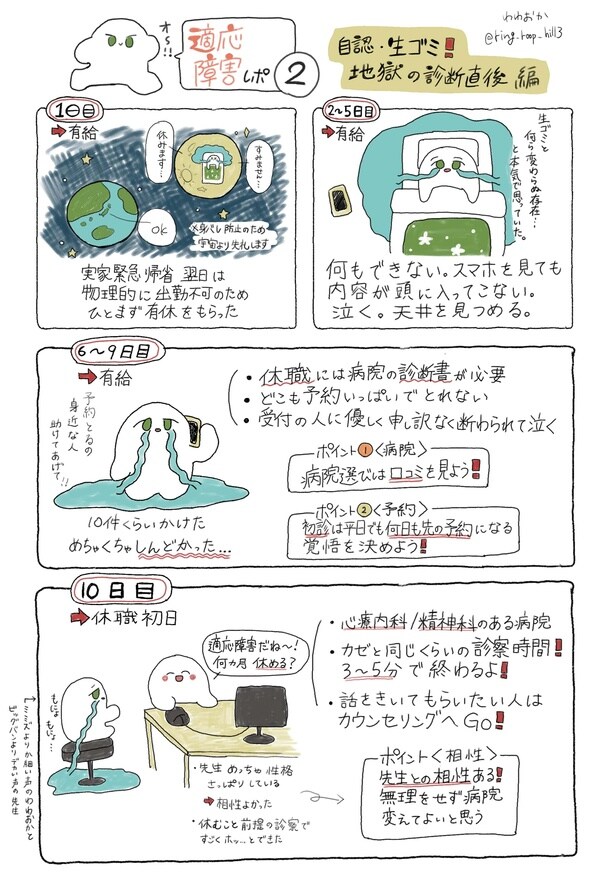 われおか
@ring_roop_hill3
オ〜!!
適応
障害レポ②
自認・生ゴミ!
地獄の診断直後編
1日目
➡有給
休みます…
すみません…
OK
※身バレ防止のため
宇宙より失礼します
実家緊急帰省翌日は
物理的に出勤不可のため
ひとまず有休をもらった
2〜5日目
➡有給
生ゴミと
何ら変わらぬ存在…
と本気で思っていた。
何もできない。スマホを見ても
内容が頭に入ってこない。
泣く。天井を見つめる。
6〜9日目
➡有給
予約とるの
身近な人
助けてあげて!!
10件くらいかけた
めちゃくちゃしんどかった…
・休職には病院の診断書が必要
・どこも予約いっぱいでとれない
・受付の人に優しく申し訳なく断わられて泣く
ポイント①〈病院〉
病院選びは口コミを見よう!
ポイント②〈予約〉
初診は平日でも何日も先の予約になる
覚悟を決めよう!
10日目
➡休職初日
適応障害だね〜!
何ヵ月休める?
もにょ
もにょ…
←ミミズより細い声のわれおかと
ビッグバンよりデカい声の先生
・先生めっちゃ性格
さっぱりしている
➡相性よかった
・休むこと前提の診察で
すごくホッ…とできた
・心療内科/精神科のある病院
・カゼと同じくらいの診察時間!
3〜5分で終わるよ!
・話をきいてもらいたい人は
カウンセリングへGO!
ポイント〈相性〉
先生との相性ある!
無理をせず病院
変えてよいと思う